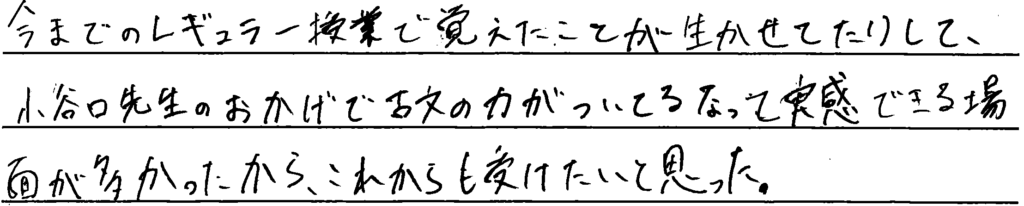 今までのレギュラー授業で覚えたことが生かせてたりして、
小谷口先生のおかげで古文の力がついてるなって実感できる場
面が多かったから、これからも受けたいと思った。